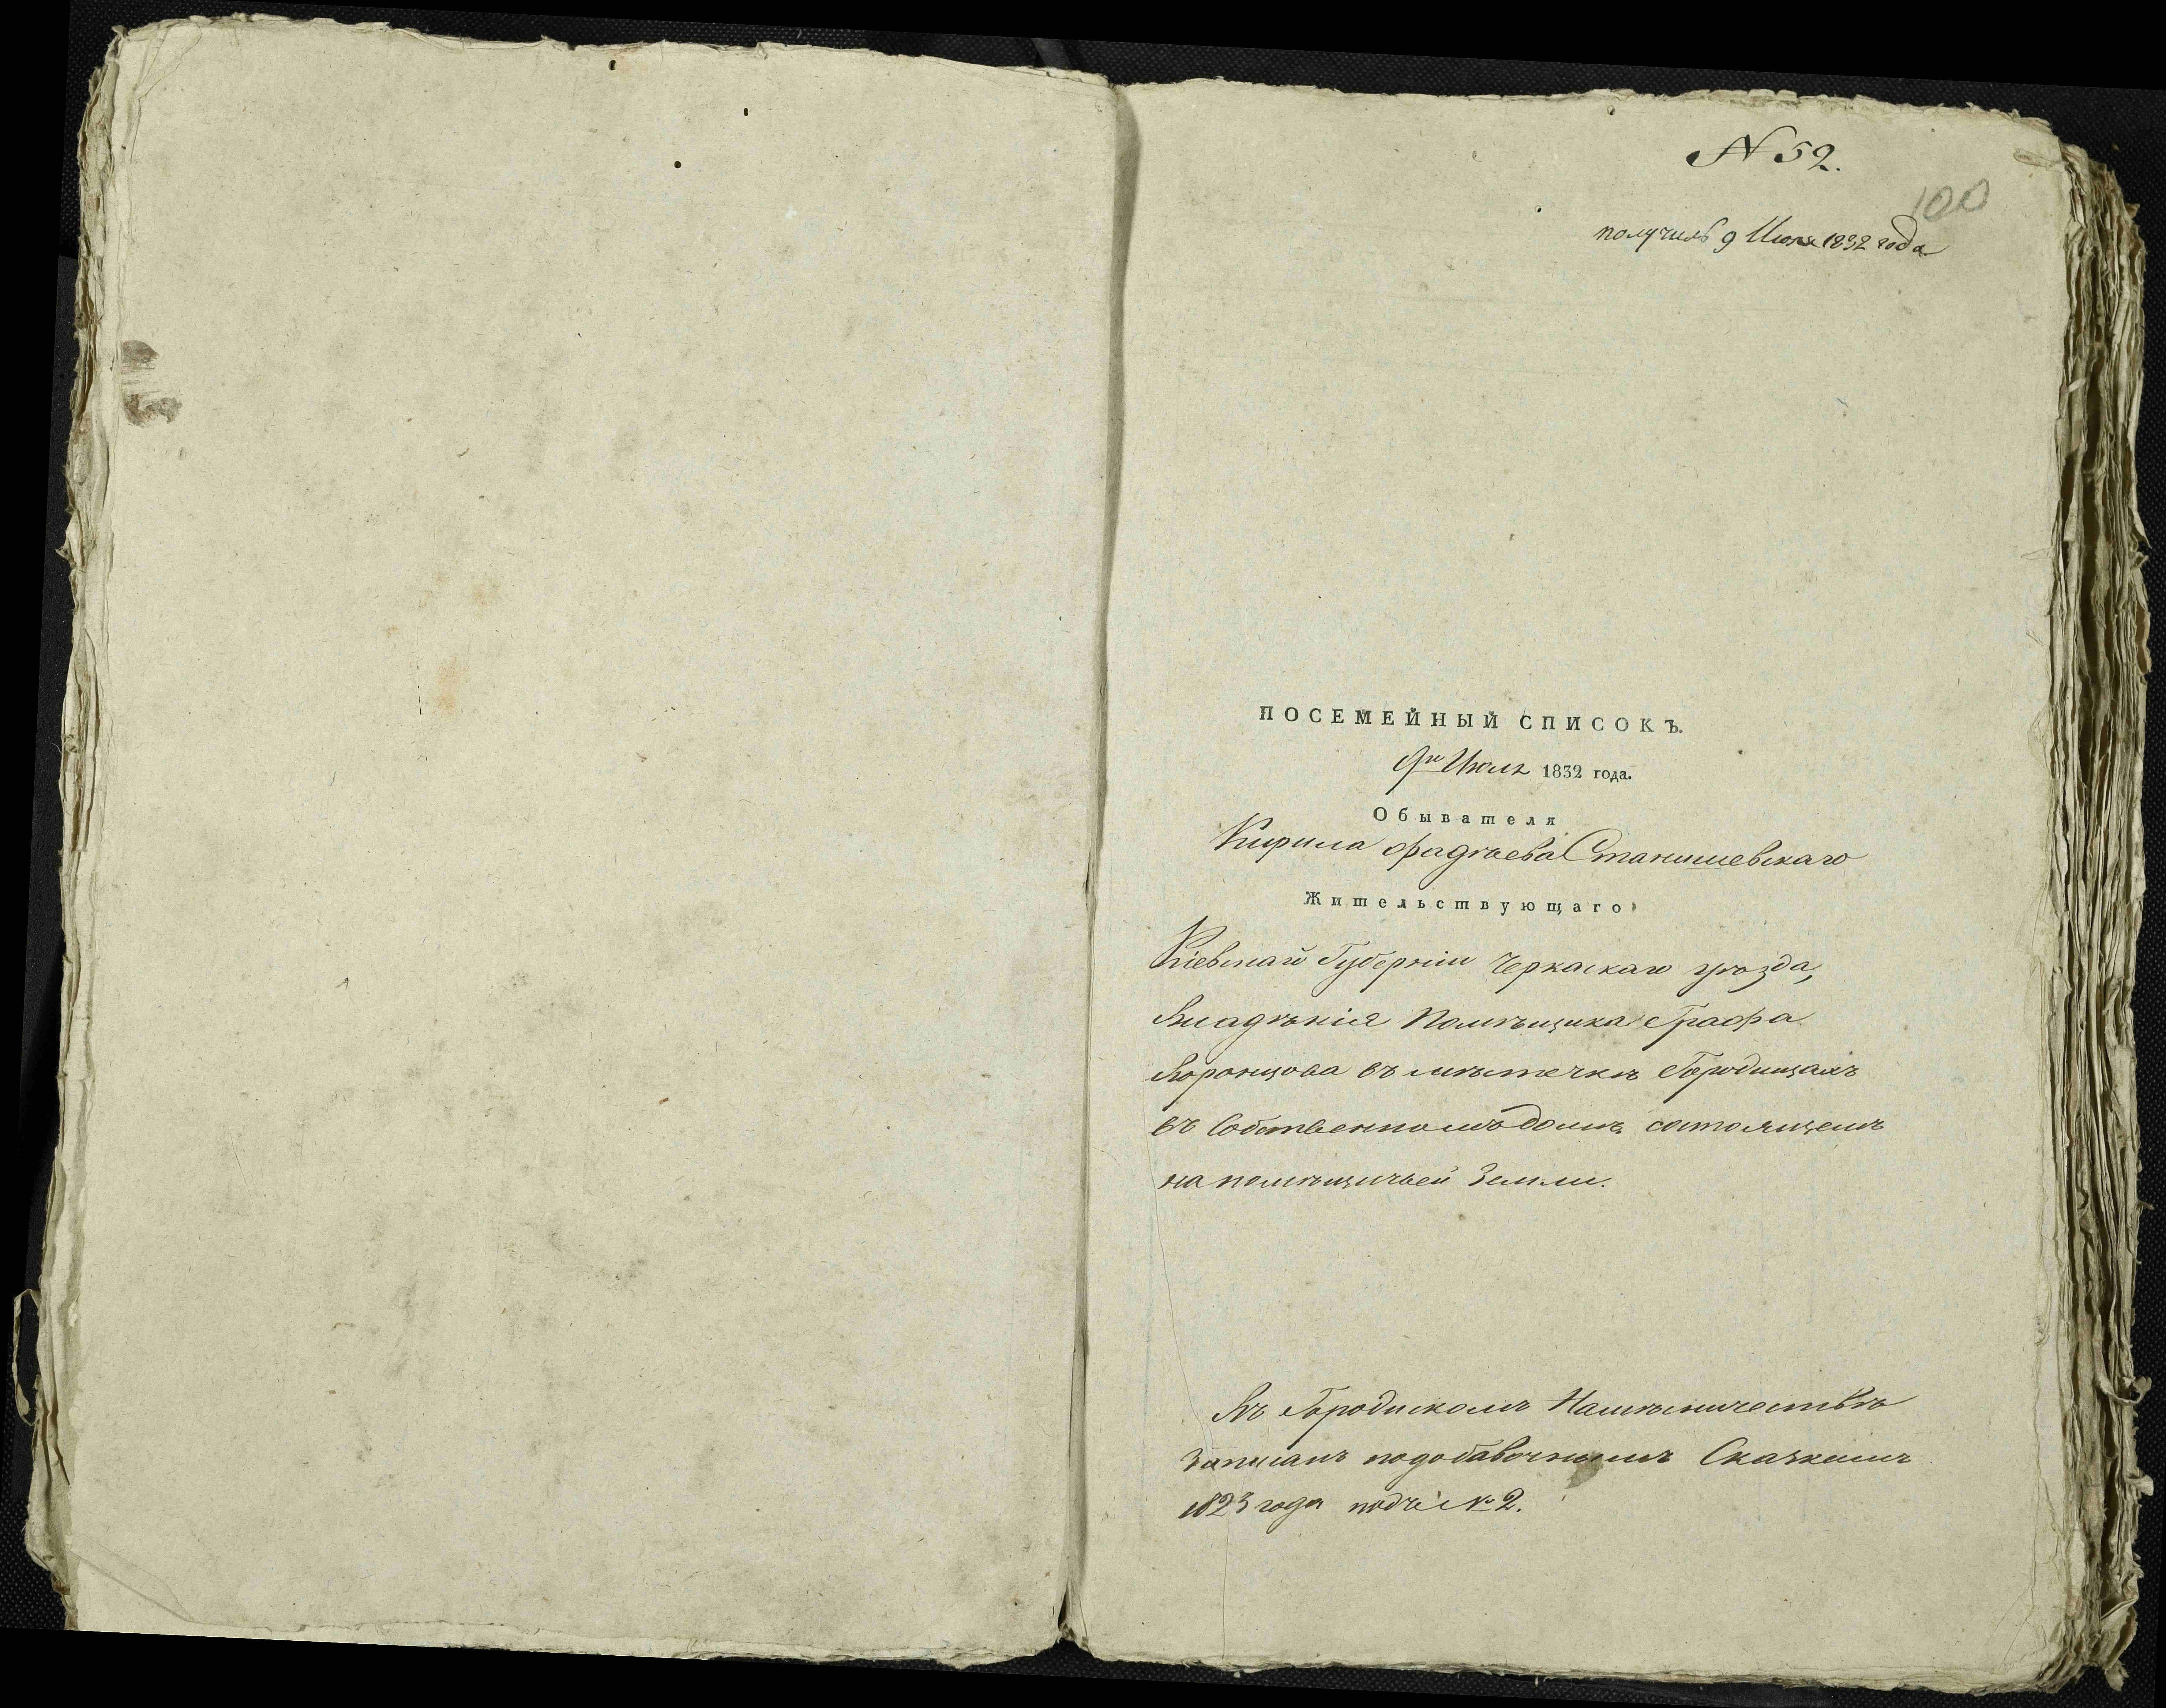 N 52.
100
получилъ 9 Июля 1832 года
ПОСЕМЕЙНЫЙ СПИСОКЪ.
9го Июля 1832 года.
Обывателя
Кирила Фадѣева Станишевскаго
Жительствующаго
Кіевской Губерніи Черкаскаго уѣзда,
Владѣнія Помѣщика Графа
Воронцова въ мѣстечкѣ Городищахъ
въ Собственномъ домѣ состоящемъ
на помѣщичьей Земли.
Въ Городиском Намѣсничествѣ
Записанъ подобавочнымъ Сказкамъ
1823 года подъ № 2.